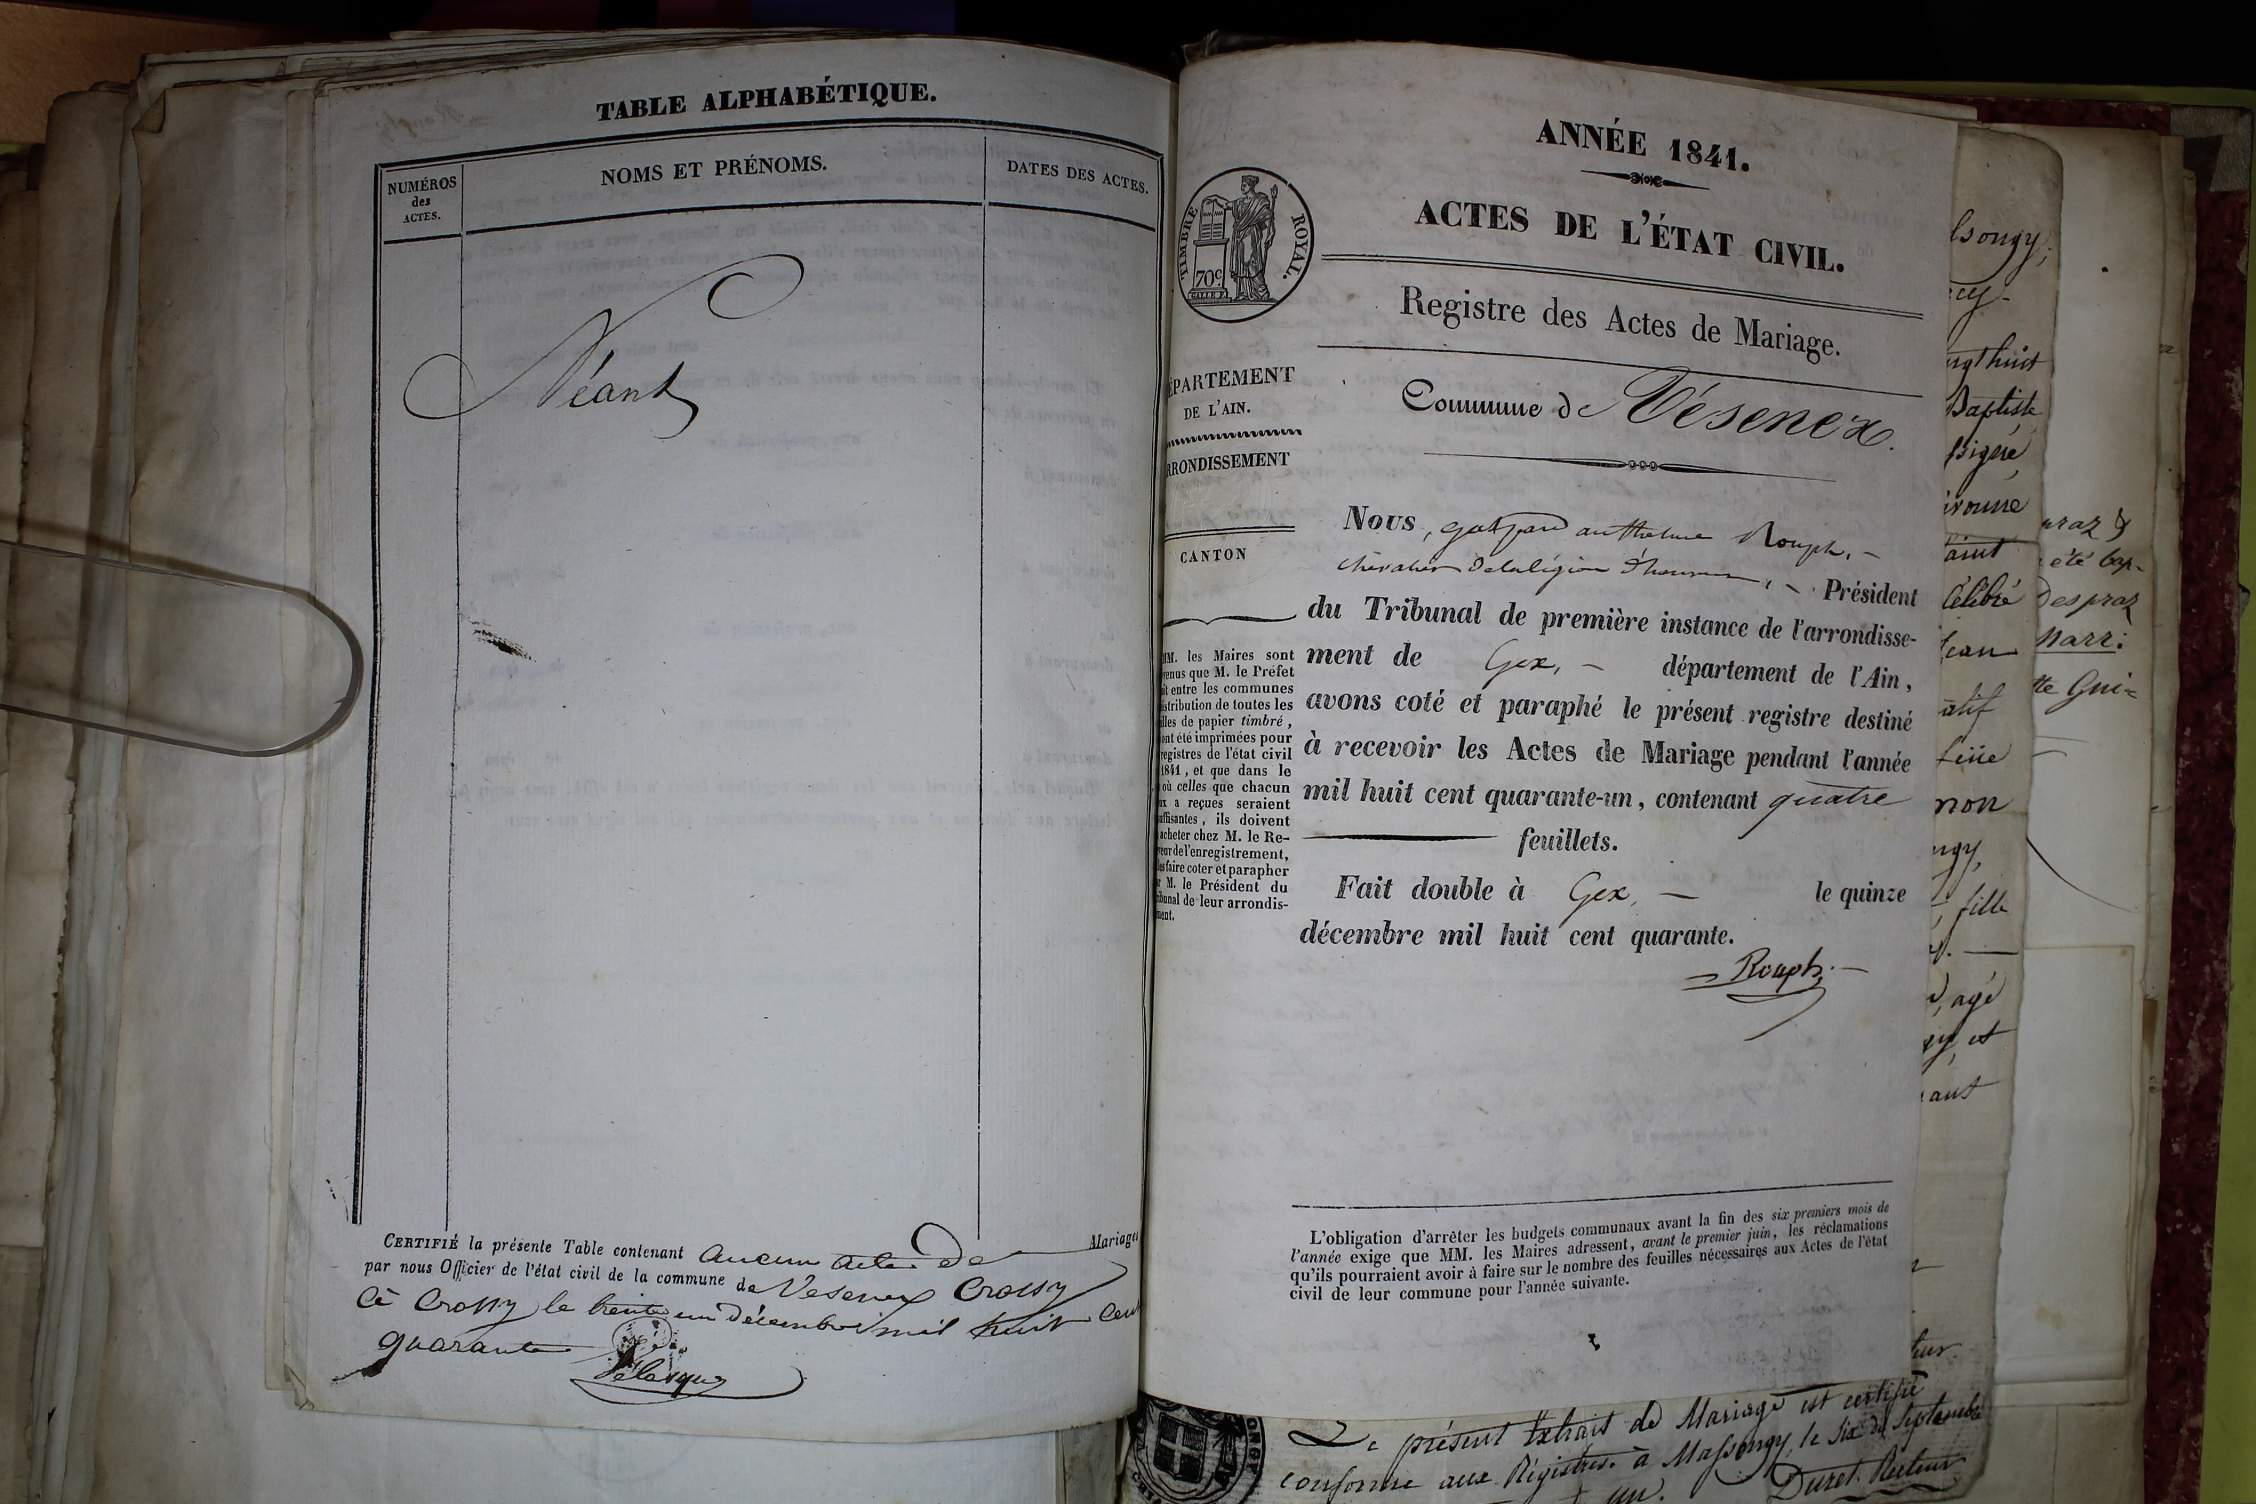 TABLE ALPHABÉTIQUE.
NUMÉROS
des
ACTES.
NOMS ET PRÉNOMS.
DATES DES ACTES.
Néant
CERTIFIÉ la présente Table contenant aucun acte de Mariages
par nous Officier de l'état civil de la commune de Vesenex Crassy
à Crassy le trente un Décembre mil huit cent
quarante
ANNÉE 1841.
ACTES DE L'ÉTAT CIVIL.
TIMBRE ROYAL.
70c
Registre des Actes de Mariage.
Commune de Vésenex.
ÉPARTEMENT
DE L'AIN.
RRONDISSEMENT
CANTON
MM. les Maires sont
venus que M. le Préfet
it entre les communes
stribution de toutes les
illes de papier timbré,
ont été imprimées pour
registres de l'état civil
1841, et que dans le
où celles que chacun
ux a reçues seraient
uffisantes, ils doivent
acheter chez M. le Re-
veur de l'enregistrement,
les faire coter et parapher
r M. le Président du
ibunal de leur arrondis-
ment.
Nous, gaspard anthelme Rouph, -
chevalier de la légion d'honneur, - Président
du Tribunal de première instance de l'arrondisse-
ment de Gex, - département de l'Ain,
avons coté et paraphé le présent registre destiné
à recevoir les Actes de Mariage pendant l'année
mil huit cent quarante-un, contenant quatre
feuillets.
Fait double à Gex, - le quinze
décembre mil huit cent quarante.
Rouph.
L'obligation d'arrêter les budgets communaux avant la fin des six premiers mois de
l'année exige que MM. les Maires adressent, avant le premier juin, les réclamations
qu'ils pourraient avoir à faire sur le nombre des feuilles nécessaires aux Actes de l'état
civil de leur commune pour l'année suivante.
ngt huit
Baptiste
Célébré
Jean
non
fille
, agé
et
été bap-
Despraz
Marr:
tte Gui=
Le présent Extrait de Mariage est certifié
conforme aux Régistres. à Massongy, le six de Septembre
un. Duret Recteur